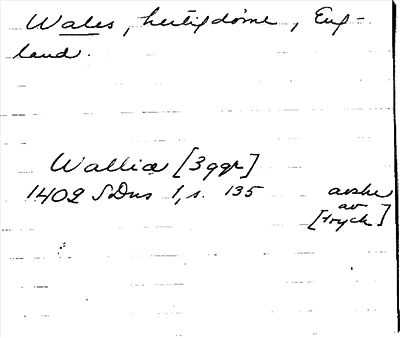 Wales, hertigdöme, Eng-
land.
Walliæ [3ggr]
1402 SDns 1, s. 135 avskr
av
[tryck]